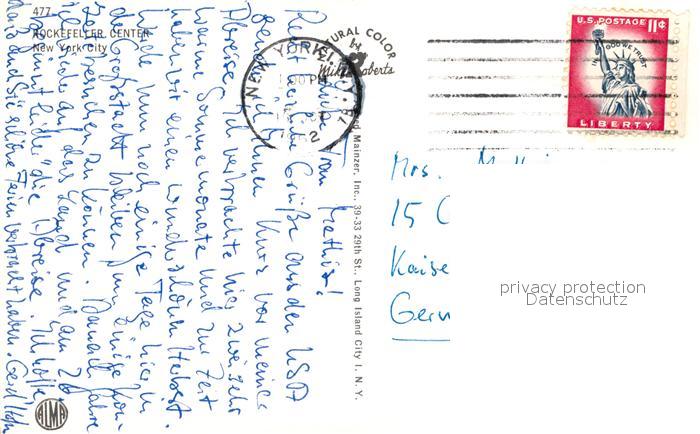 477
ROCKEFELLER CENTER
New York City
NATURAL COLOR
by
Mike Roberts
NEW YORK, N.Y.
U.S. POSTAGE 11¢
IN GOD WE TRUST
LIBERTY
Mainzer, Inc., 39-33 29th St., Long Island City 1, N. Y.
Frau Mathis!
Recht liebe Grüße aus der USA
Ihnen kurz vor meiner
Abreise. Ich verbrachte hier zwei sehr
warme Sommermonate und zur Zeit
haben wir einen wunderschönen Herbst.
Werde nun noch einige Tage hier in
der Großstadt bleiben, um einige
zu können. Danach fahre
ich auf das Land und am 26.
"die Abreise. Ich hoffe,
daß auch Sie schöne Ferien verbracht haben.
ALMA
Mrs.
15 C
Kaise
Germ
privacy protection
Datenschutz